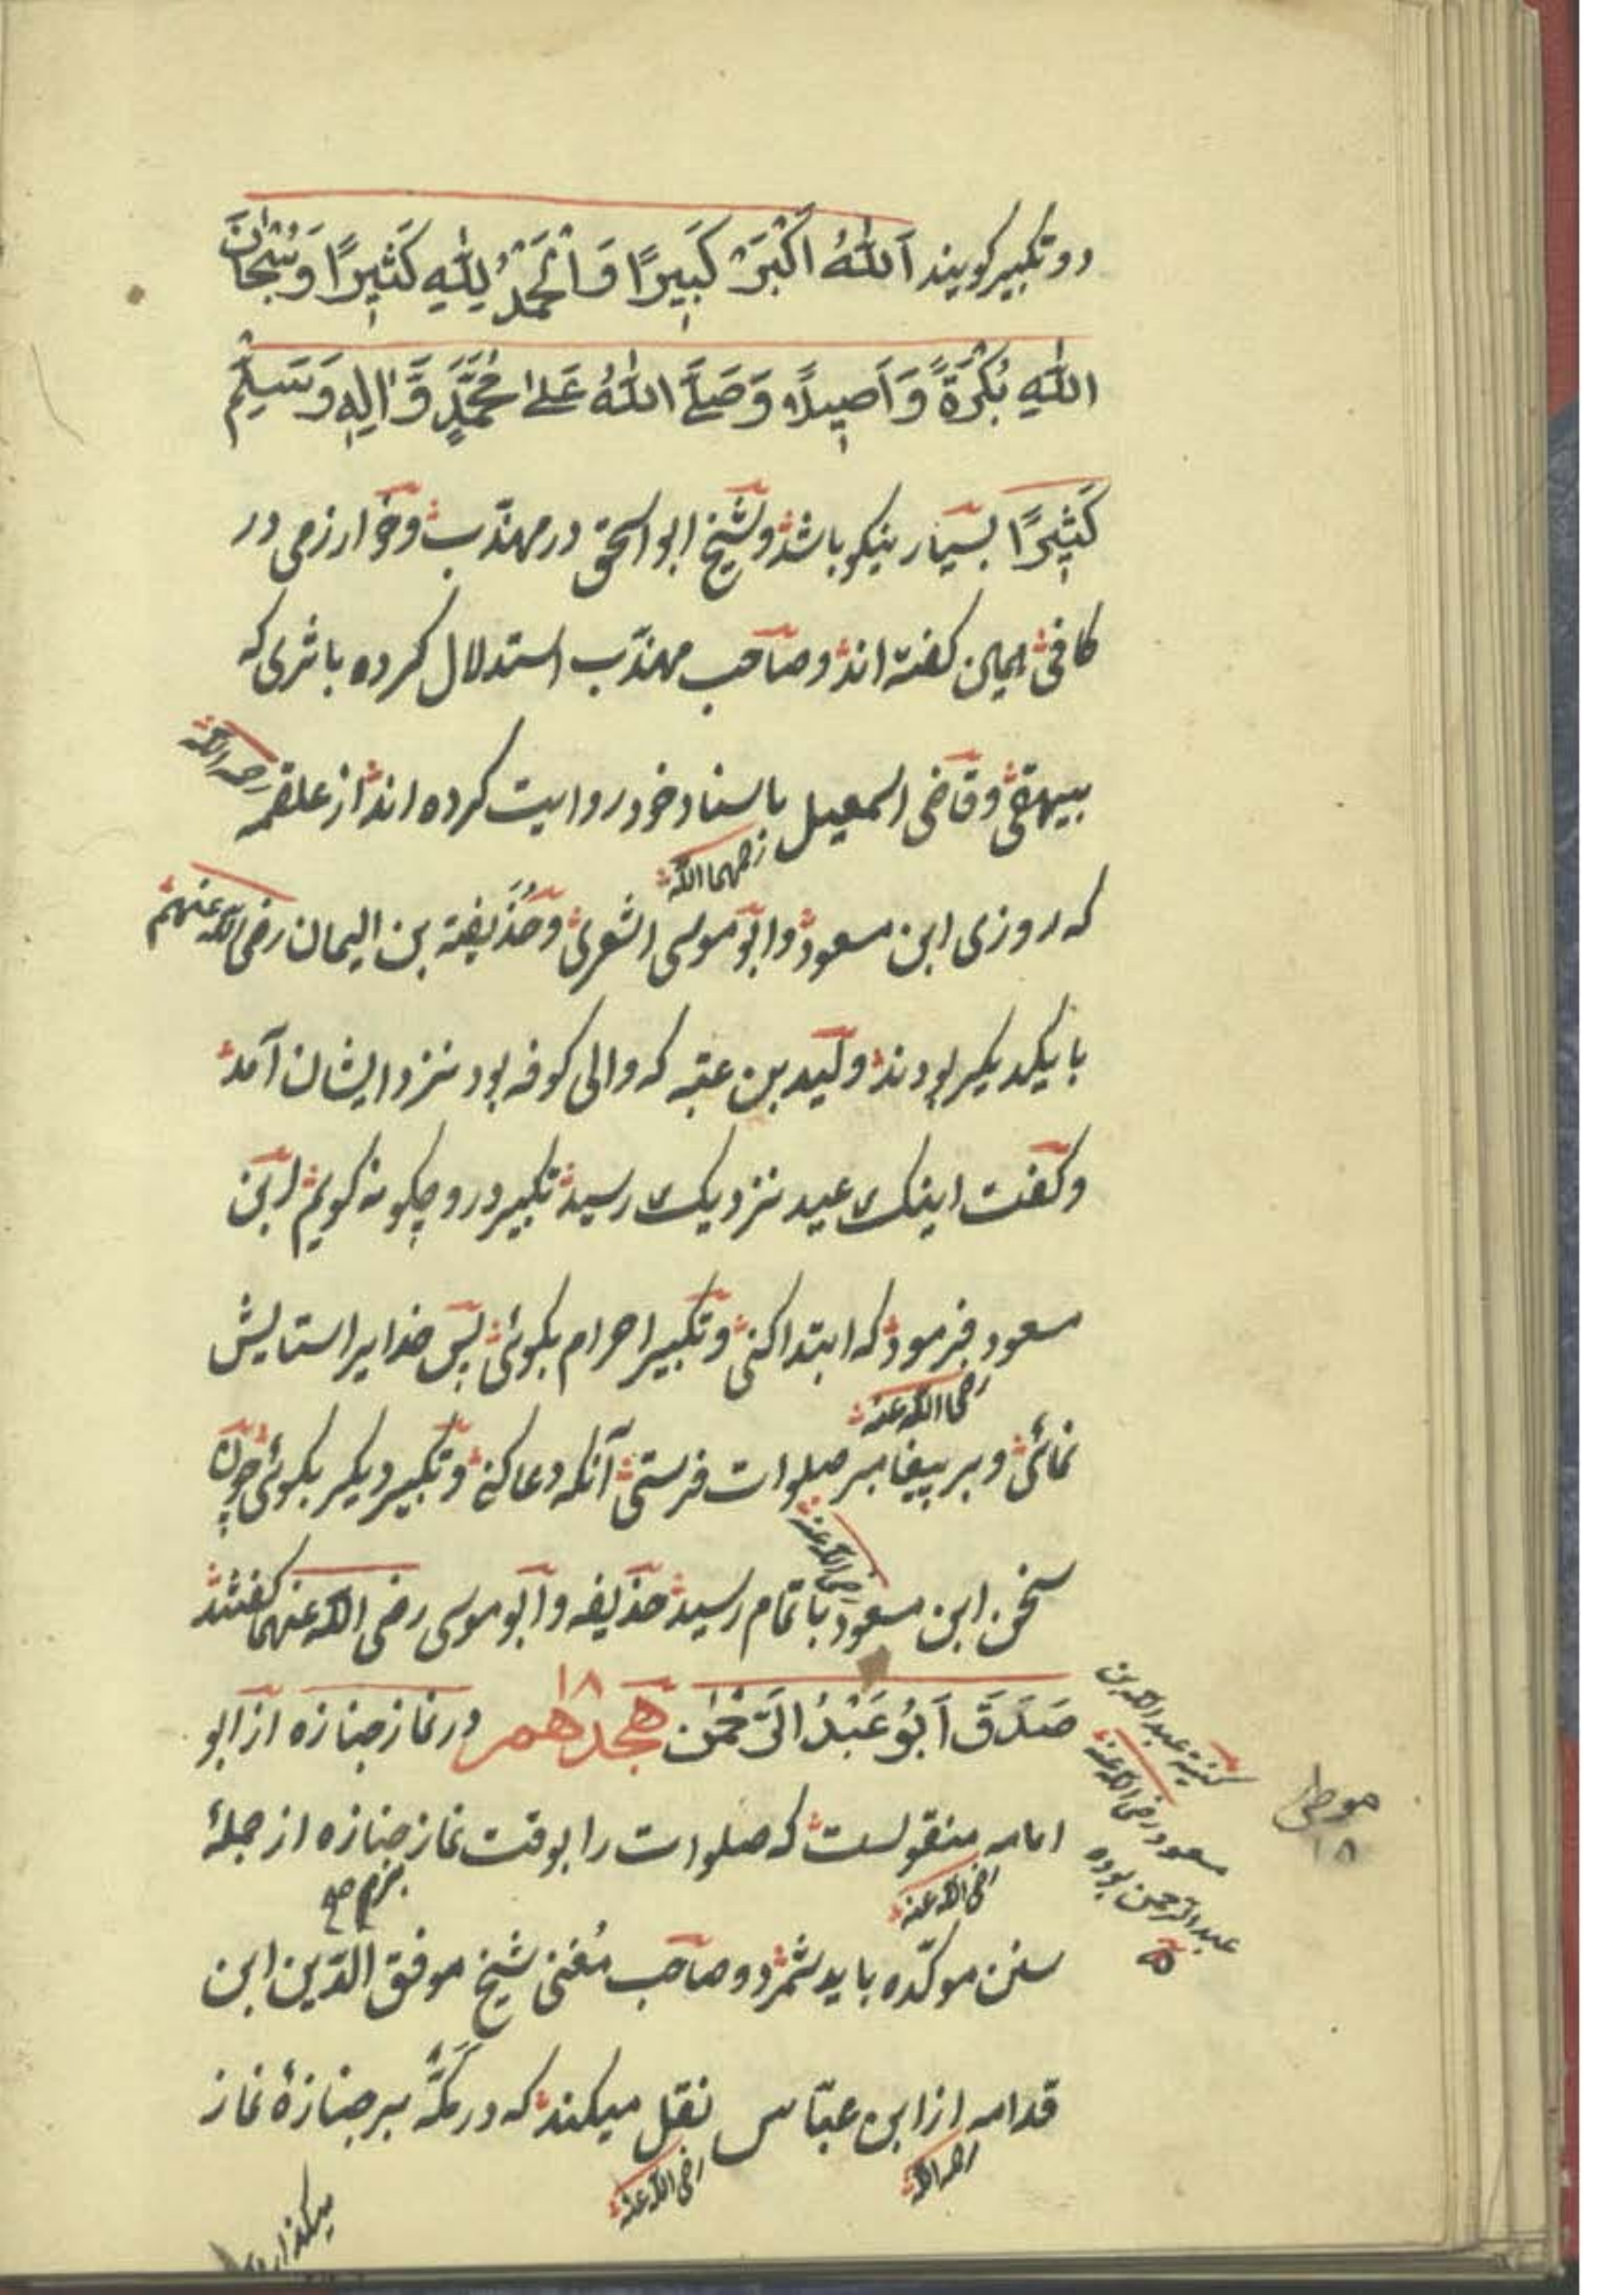 دو تکبیر کویند اَللّٰهُ اَکْبَرُ کَبِیرًا وَالْحَمْدُ لِلّٰهِ کَثِیرًا وَسُبْحَانَ
اللّٰهِ بُکْرَةً وَاَصِیلًا وَصَلَّی اللّٰهُ عَلٰی مُحَمَّدٍ وَّاٰلِهٖ وَسَلَّمَ
کَثِیرًا بسیار نیکو باشد وشیخ ابو اسحق در مهذّب وخوارزمی در
کافی همین کفته اند وصاحب مهذّب استدلال کرده باثری که
بیهقی وقاضی اسمعیل باسناد خود روایت کرده اند از علقمه رحمه الله
رحمهما الله
که روزی ابن مسعود وابو موسی اشعری وحُذَیفة بن الیمان رضی الله عنهم
با یکدیکر بودند ولید بن عقبه که والی کوفه بود نزد ایشان آمد
وکفت اینک عید نزدیک رسید تکبیر درو چکونه کویم ابن
مسعود فرمود که ابتدا کنی وتکبیر احرام بکوئی پس خدایرا ستایش
رضی الله عنه
نمائی وبر پیغامبر صلوات فرستی آنکه دعا کنی وتکبیر دیکر بکوئی چون
رضی الله عنه
سخن ابن مسعود باتمام رسید حذیفه وابو موسی رضی الله عنهما کفتند
صَدَقَ اَبُو عَبْدُ الرَّحْمٰن هجدهم ۱۸ در نماز جنازه از ابو
کنیة عبد الله بن
مسعود رضی الله عنه
عبد الرحمن بوده
موطن
۱۸
امامه منقولست که صلوات را بوقت نماز جنازه از جملهٔ
رضی الله عنه
سنن موکّده باید شمرد وصاحب مُغنی شیخ موفق الدّین ابن
قدامه از ابن عبّاس نقل میکند که در مَکَّه بر جنازهٔ نماز
رحمه الله
رضی الله عنه